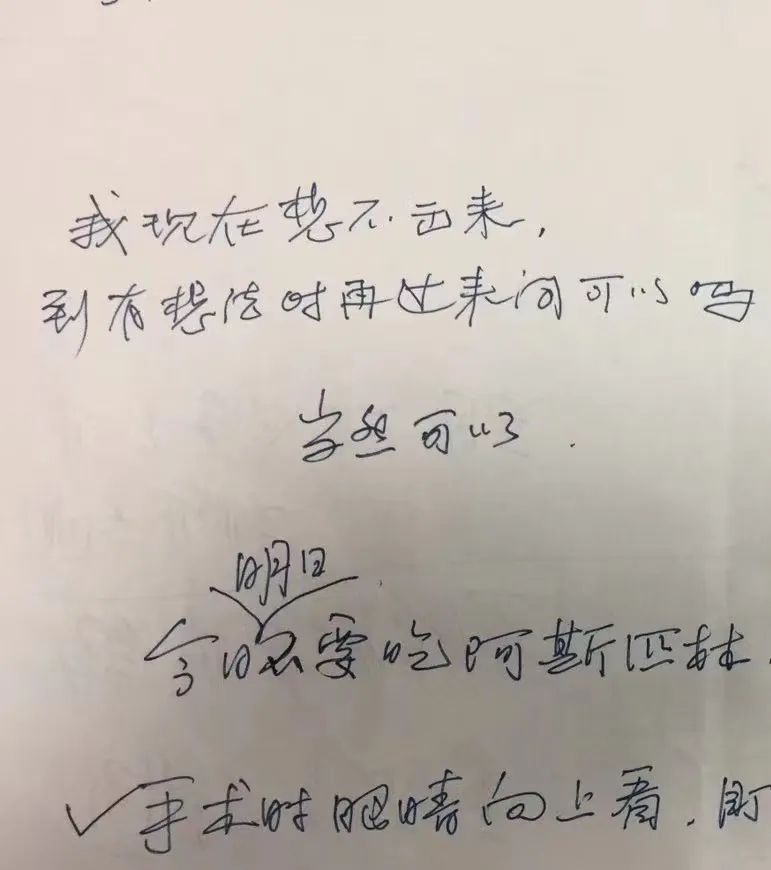 我现在想不出来，
到有想法时再过来问可以吗
当然可以.
明日
今日不要吃阿斯匹林.
✓手术时眼睛向上看.